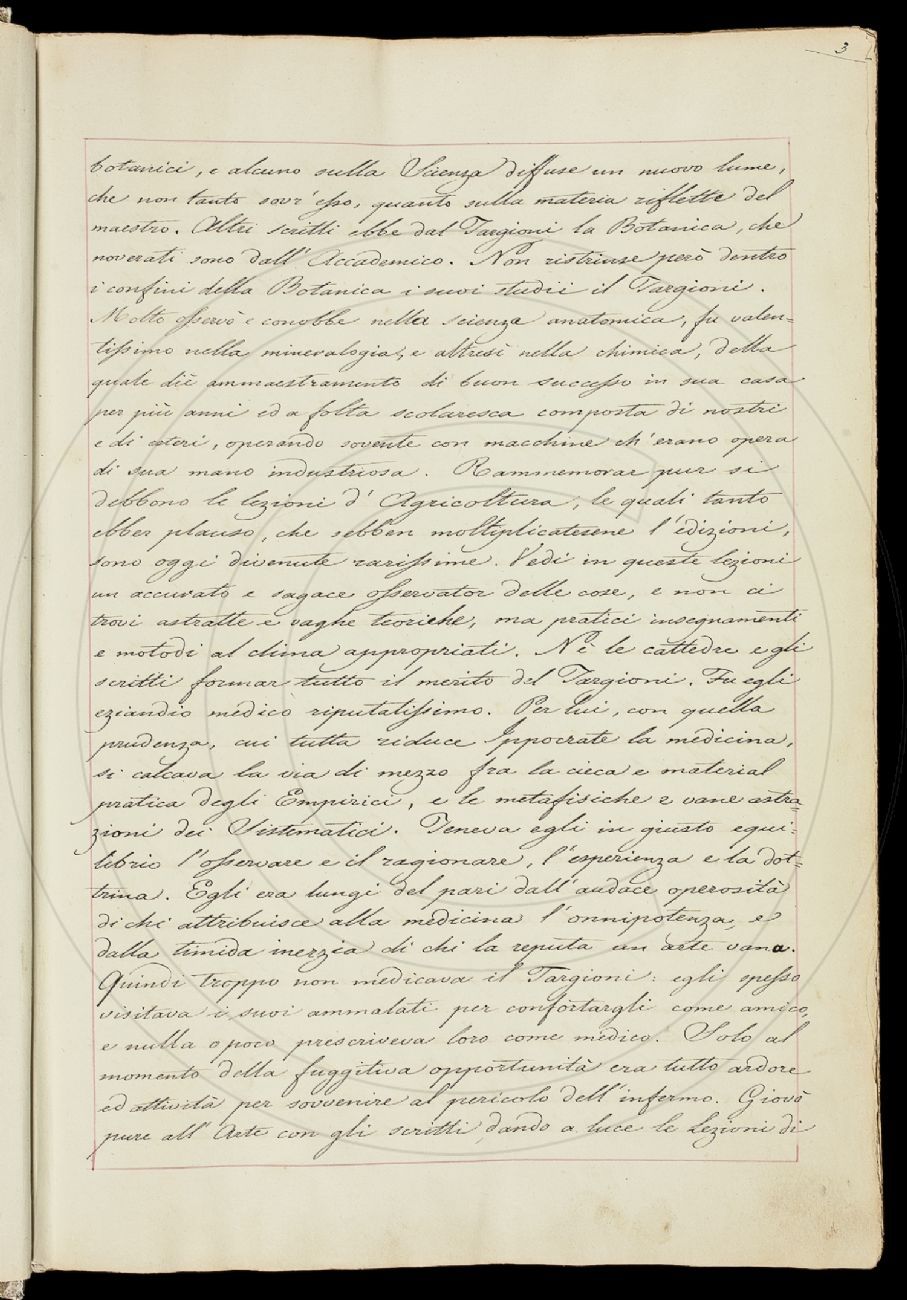 3
botanici, e alcuno sulla Scienza diffuse un nuovo lume,
che non tanto sovr'esso, quanto sulla materia riflette del
maestro. Altri scritti ebbe dal Targioni la Botanica, che
noverati sono dall'Accademico. Non ristrinse però dentro
i confini della Botanica i suoi studii il Targioni.
Molto osservò e conobbe nella scienza anatomica, fu valen=
tissimo nella mineralogia, e altresì nella chimica, della
quale diè ammaestramento di buon successo in sua casa
per più anni ed a folta scolaresca composta di nostri
e di esteri, operando sovente con macchine ch'erano opera
di sua mano industriosa. Rammemorar pur si
debbono le lezioni d'Agricoltura, le quali tanto
ebber plauso, che sebben moltiplicatesene l'edizioni,
sono oggi divenute rarissime. Vedi in queste lezioni
un accurato e sagace osservator delle cose, e non ci
trovi astratte e vaghe teoriche, ma pratici insegnamenti
e motodi al clima appropriati. Nè le cattedre e gli
scritti formar tutto il merito del Targioni. Fu egli
eziandio medico riputatissimo. Per lui, con quella
prudenza, cui tutta riduce Ippocrate la medicina,
si calcava la via di mezzo fra la cieca e material
pratica degli Empirici, e le metafisiche e vane astra=
zioni dei Sistematici. Teneva egli in giusto equi=
librio l'osservare e il ragionare, l'esperienza e la dot=
trina. Egli era lungi del pari dall'audace operosità
di chi attribuisce alla medicina l'onnipotenza, e
dalla timida inerzia di chi la reputa un arte vana.
Quindi troppo non medicava il Targioni: egli spesso
visitava i suoi ammalati per confortargli come amico,
e nulla o poco prescriveva loro come medico. Solo al
momento della fuggitiva opportunità era tutto ardore
ed attività per sovvenire al pericolo dell'infermo. Giovò
pure all'Arte con gli scritti, dando a luce le Lezioni di